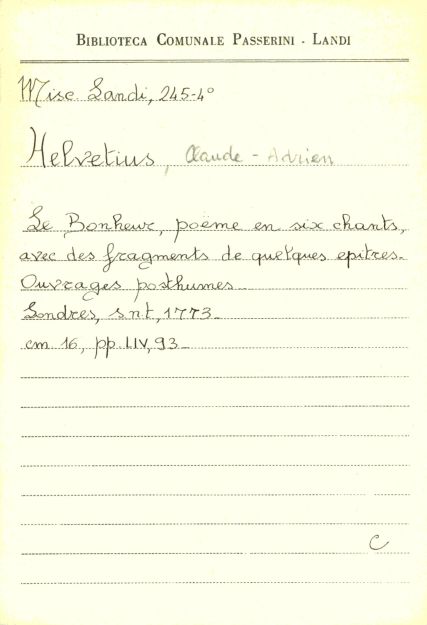 BIBLIOTECA COMUNALE PASSERINI - LANDI
Misc. Landi, 245-4°
Helvetius, Claude - Adrien
Le Bonheur, poëme en six chants,
avec des fragments de quelques epitres.
Ouvrages posthumes -
Londres, s.n.t, 1773 -
cm 16, pp. LIV, 93 -
C